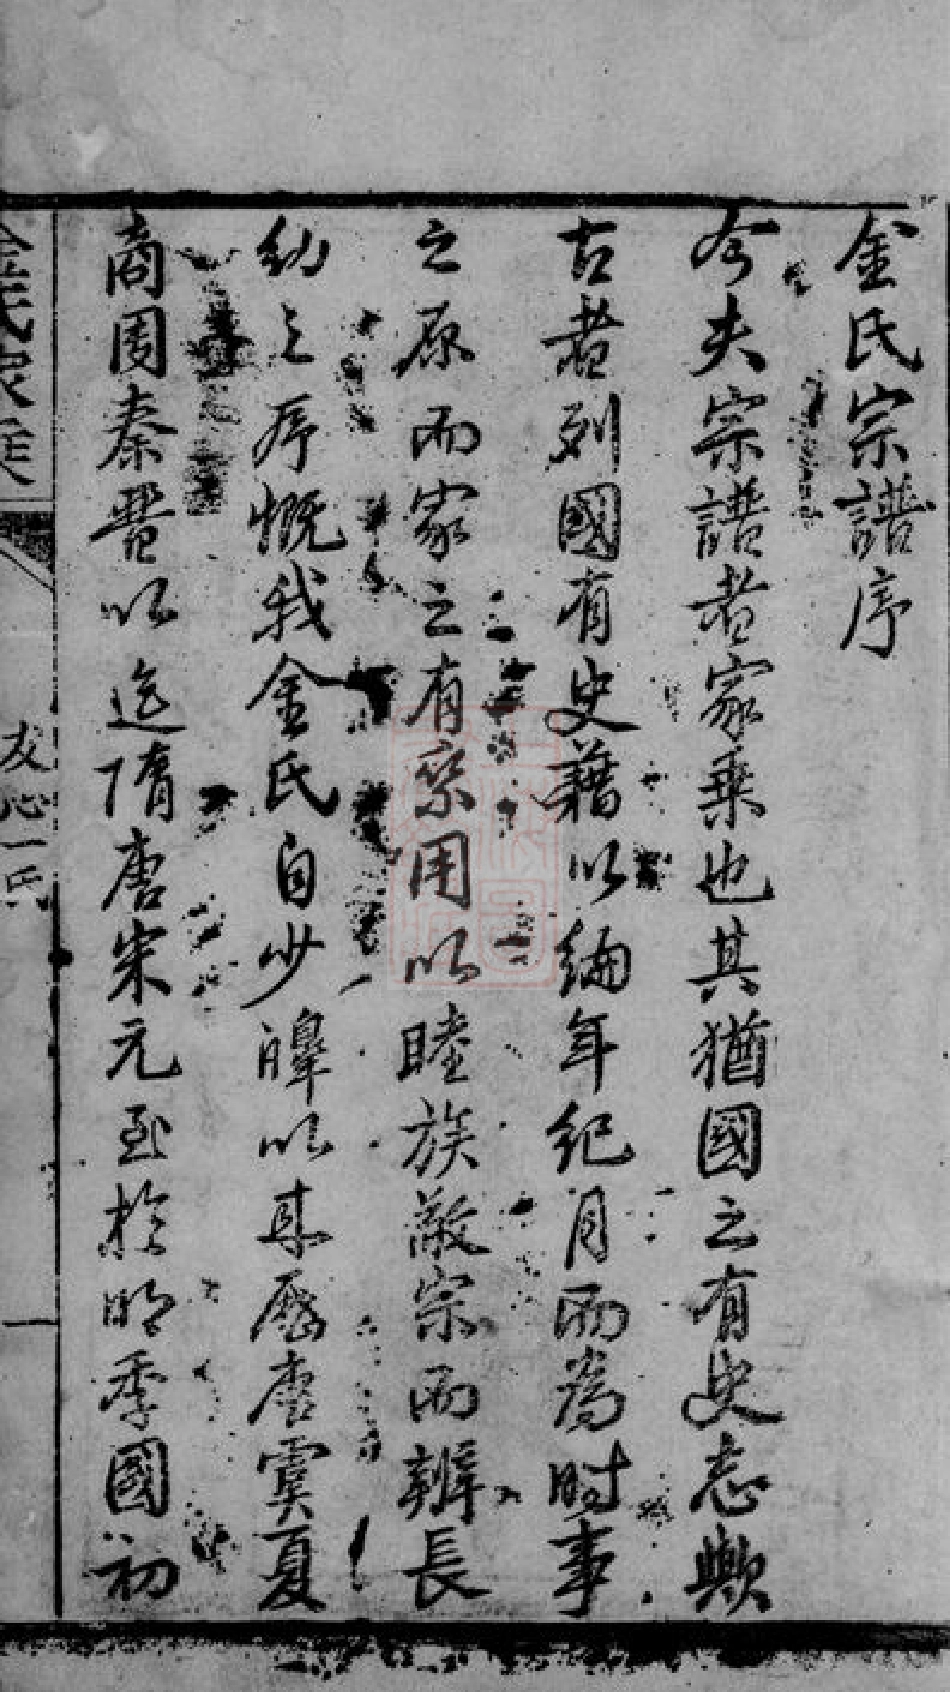 金氏宗譜序
今夫宗譜者家乗也其猶國之有史志歟
古者列國有史藉以編年紀月而為時事
之原而家之有用以睦族敬宗而辨長
幼之序慨我金氏自少皡以来歷唐虞夏
商周秦晋以迄隋唐宋元至於明季國初
金氏家乗
友心一氏
一